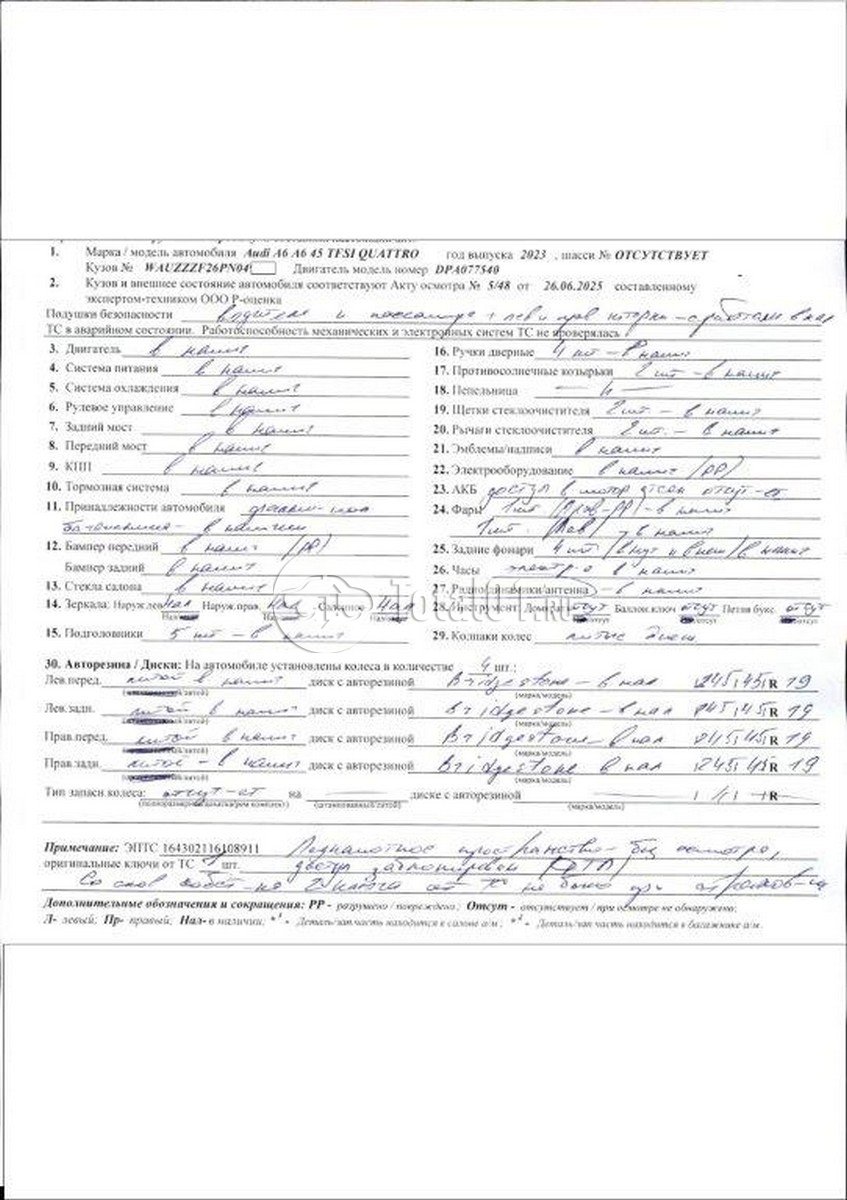 1. Марка / модель автомобиля Audi A6 A6 45 TFSI QUATTRO год выпуска 2023 , шасси № ОТСУТСТВУЕТ
Кузов № WAUZZZF26PN04 Двигатель модель номер DPA077540
2. Кузов и внешнее состояние автомобиля соответствуют Акту осмотра № 5/48 от 26.06.2025 составленному
экспертом-техником ООО Р-оценка
Подушки безопасности водителя и пассажира + лев и прав шторки - сработали в нал
ТС в аварийном состоянии. Работоспособность механических и электронных систем ТС не проверялась
3. Двигатель в налич
4. Система питания в налич
5. Система охлаждения в налич
6. Рулевое управление в налич
7. Задний мост в налич
8. Передний мост в налич
9. КПП в налич
10. Тормозная система в налич
11. Принадлежности автомобиля
в наличии
12. Бампер передний в налич (РР)
Бампер задний в налич
13. Стекла салона в налич
14. Зеркала: Наруж.лев Нал Наруж.прав Нал Салонное Нал
15. Подголовники 5 шт - в налич
16. Ручки дверные 4 шт - в налич
17. Противосолнечные козырьки 2 шт - в налич
18. Пепельница
19. Щетки стеклоочистителя 2 шт. - в налич
20. Рычаги стеклоочистителя 2 шт. - в налич
21. Эмблемы/надписи в налич
22. Электрооборудование в налич (РР)
23. АКБ доступ в мотор отсек отсут-ет
24. Фары 1 шт (Прав-РР) - в налич
1 шт. (Лев) - в налич
25. Задние фонари 4 шт (внут и внеш) в налич
26. Часы электр-е в налич
27. Радио/динамики/антенна - в налич
28. Инструмент: Домкрат отсут Баллон.ключ отсут Петля букс. отсут
29. Колпаки колес литые диски
30. Авторезина / Диски: На автомобиле установлены колеса в количестве 4 шт.:
Лев.перед. литой в налич диск с авторезиной Bridgestone - в нал 245/45/R 19
(марка/модель)
Лев.задн. литой в налич диск с авторезиной Bridgestone - в нал 245/45/R 19
(марка/модель)
Прав.перед. литой в налич диск с авторезиной Bridgestone - в нал 245/45/R 19
(марка/модель)
Прав.задн. литой - в налич диск с авторезиной Bridgestone в нал 245/45/R 19
Тип запасн колеса: отсут-ет на диске с авторезиной / / R
(штампованный/литой) (марка/модель)
Примечание: ЭПТС 164302116108911 Подкапотное пространство - без осмотра,
оригинальные ключи от ТС 1 шт. доступ заблокирован (ДТП)
Со слов собст-ка 2 ключа от ТС не было
Дополнительные обозначения и сокращения: РР - разрушено / повреждено; Отсут - отсутствует / при осмотре не обнаружено;
Л- левый; Пр- правый; Нал- в наличии; *1 - Деталь/зап часть находится в салоне а/м; *2 - Деталь/зап часть находится в багажнике а/м.
Total01.RU